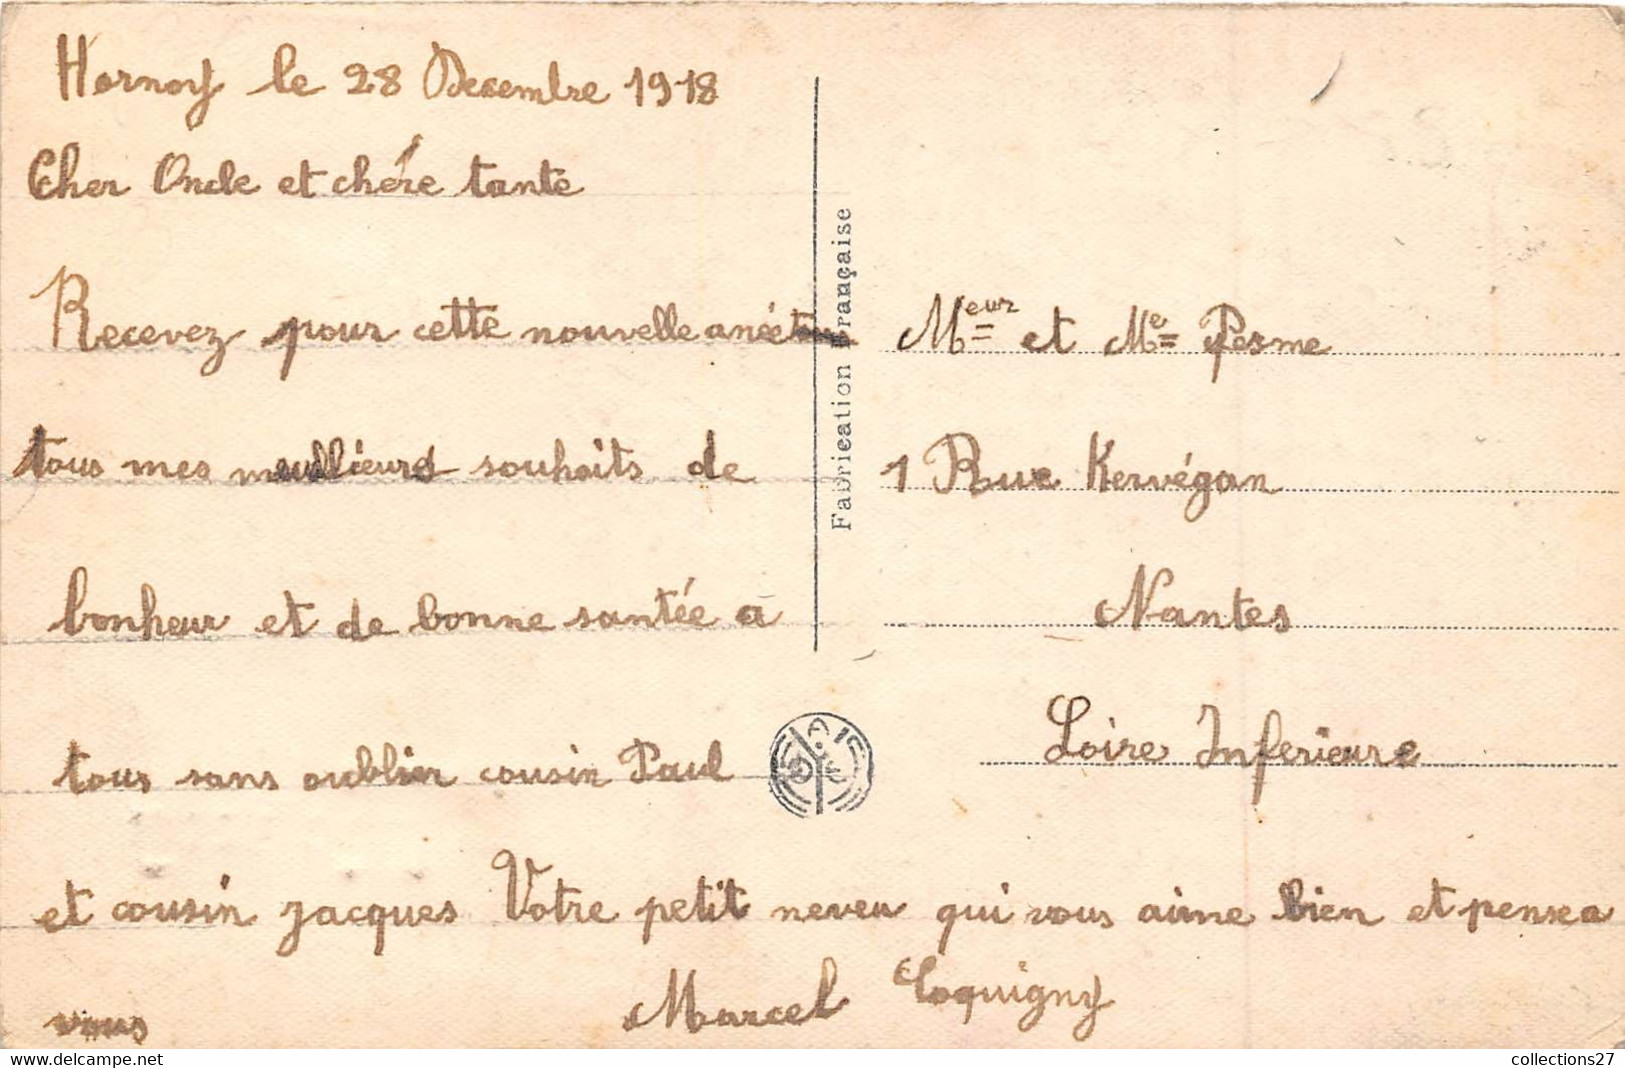 Hornoy le 28 Decembre 1918
Cher Oncle et chére tante
Recevez pour cette nouvelle anée
tous mes meullieurs souhaits de
bonheur et de bonne santée a
tous sans oublier cousin Paul
et cousin jacques Votre petit neveu qui vous aime bien et pense a
vous
Marcel Coquigny
Fabrication Française
Meur et Me Pesme
1 Rue Kervégan
Nantes
Loire Inferieure
collections27